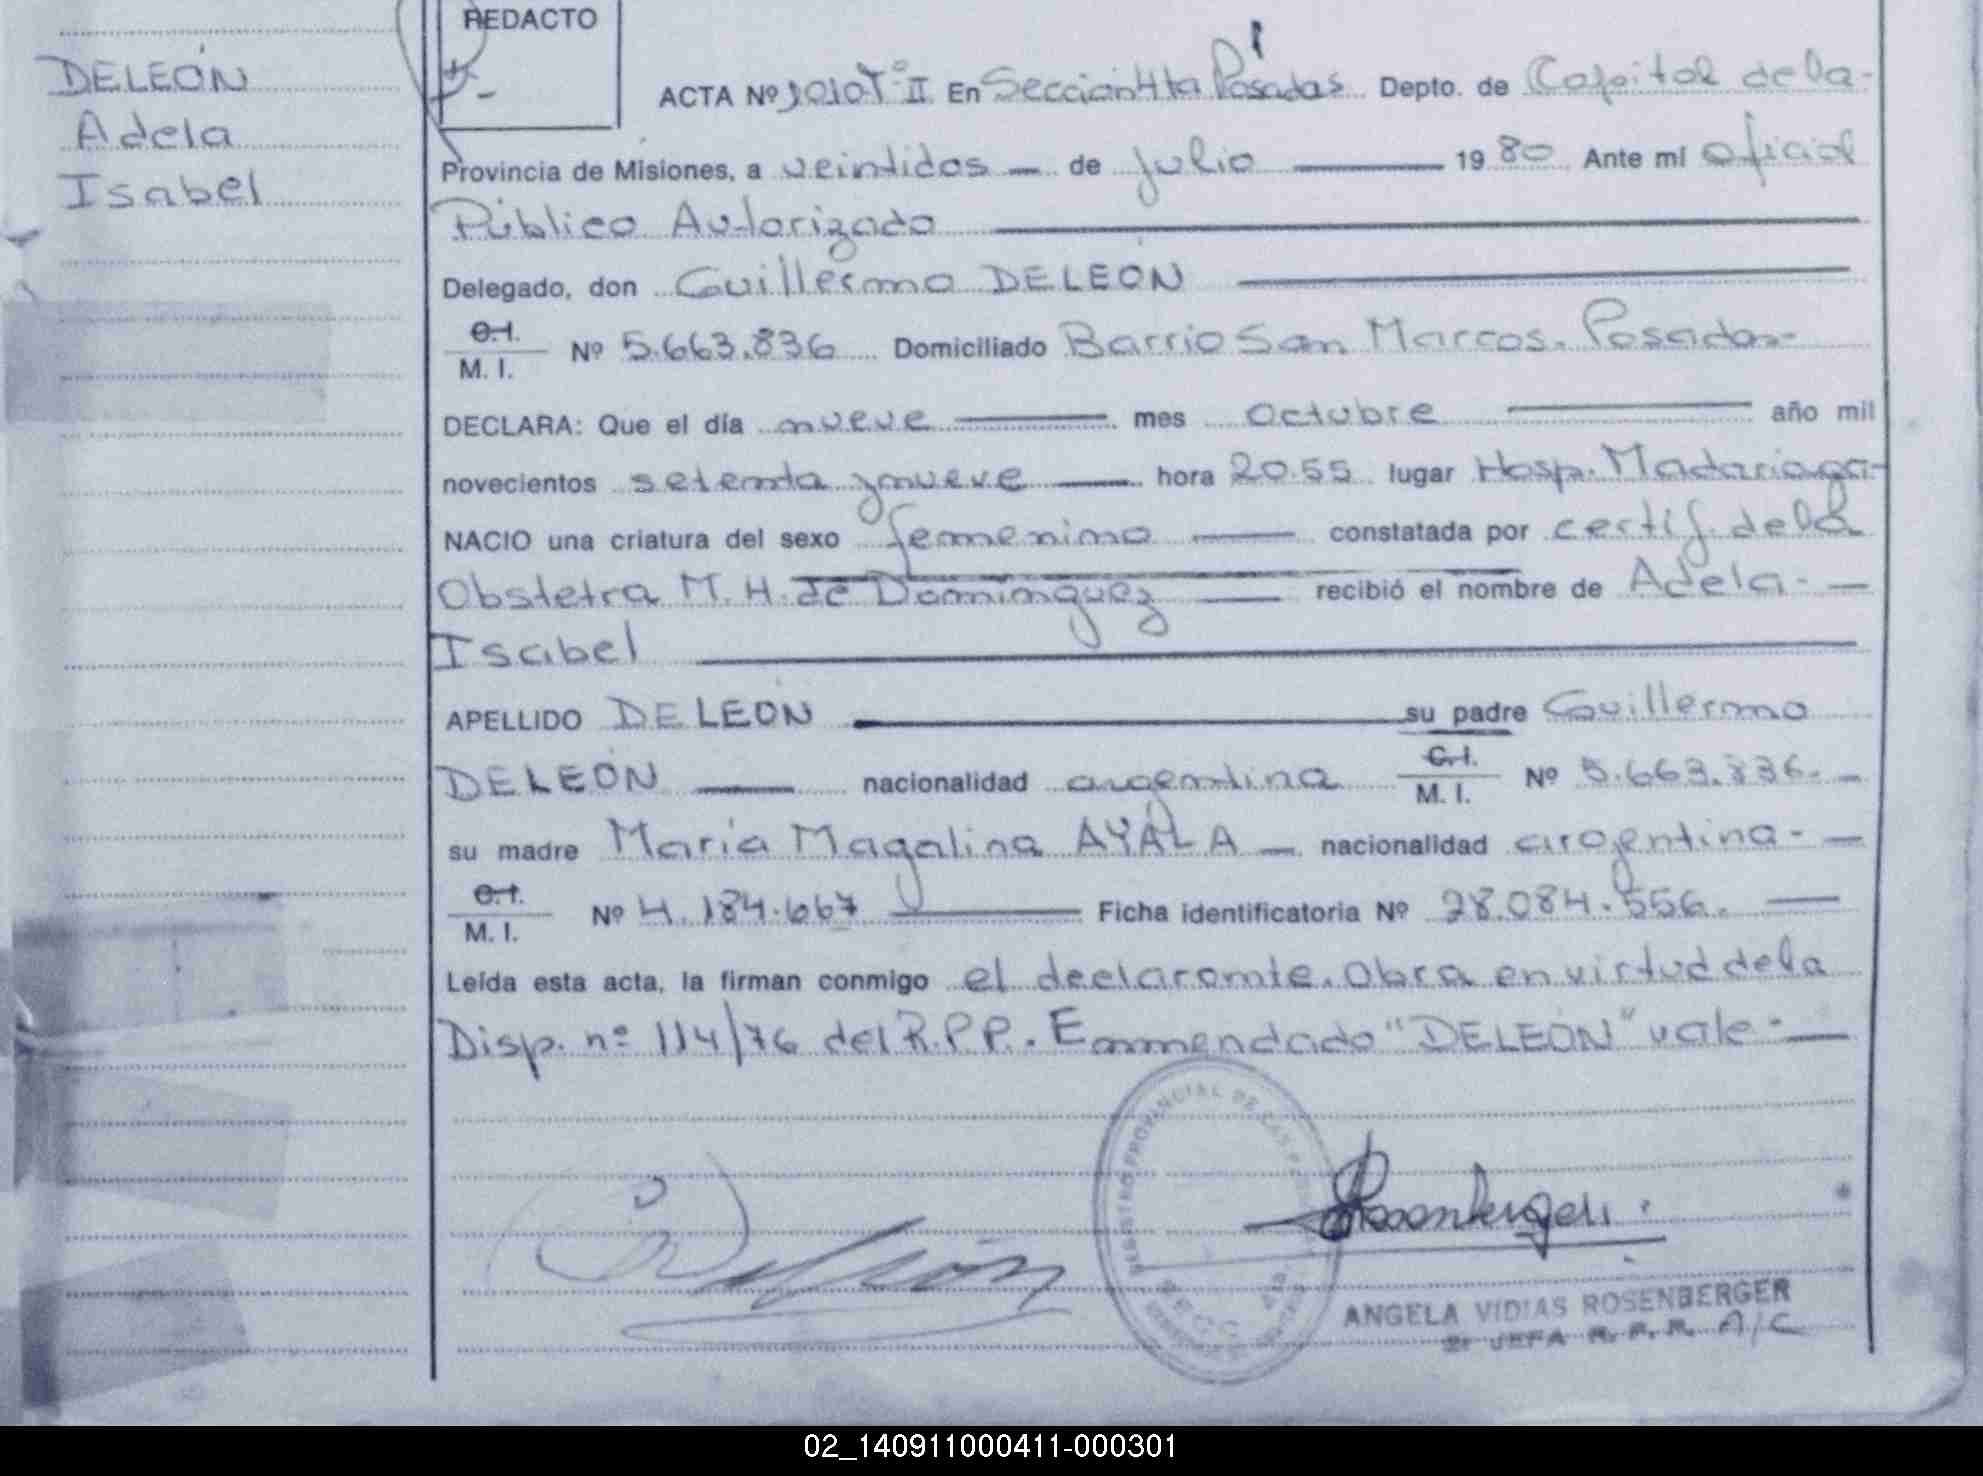 REDACTO
DELEÓN
Adela
Isabel
ACTA Nº 1010 Tº II En Sección 4ta Posadas Depto. de Capital de la-
Provincia de Misiones, a veintidos — de julio — 19 80 Ante mi oficial
Público Autorizado
Delegado, don Guillermo DELEÓN
C.I.
M. I. Nº 5.663.836 Domiciliado Barrio San Marcos. Posadas-
DECLARA: Que el día nueve — mes octubre — año mil
novecientos setenta y nueve — hora 20.55 lugar Hosp. Madariaga-
NACIO una criatura del sexo femenino — constatada por certif. de la
Obstetra M. H. de Dominguez — recibió el nombre de Adela- —
Isabel
APELLIDO DELEÓN su padre Guillermo
DELEÓN — nacionalidad argentina C.I.
M. I. Nº 5.663.836. —
su madre María Magalina AYALA — nacionalidad argentina- —
C.I.
M. I. Nº 4.184.667 — Ficha identificatoria Nº 28.084.556. —
Leída esta acta, la firman conmigo el declarante. Obra en virtud de la
Disp. nº 114/76 del R.P.P. Enmendado "DELEÓN" vale- —
REGISTRO PROVINCIAL DE LAS
Deleón
Rosenberger
ANGELA VIDIAS ROSENBERGER
JEFA R. P. P. A/C
02_140911000411-000301